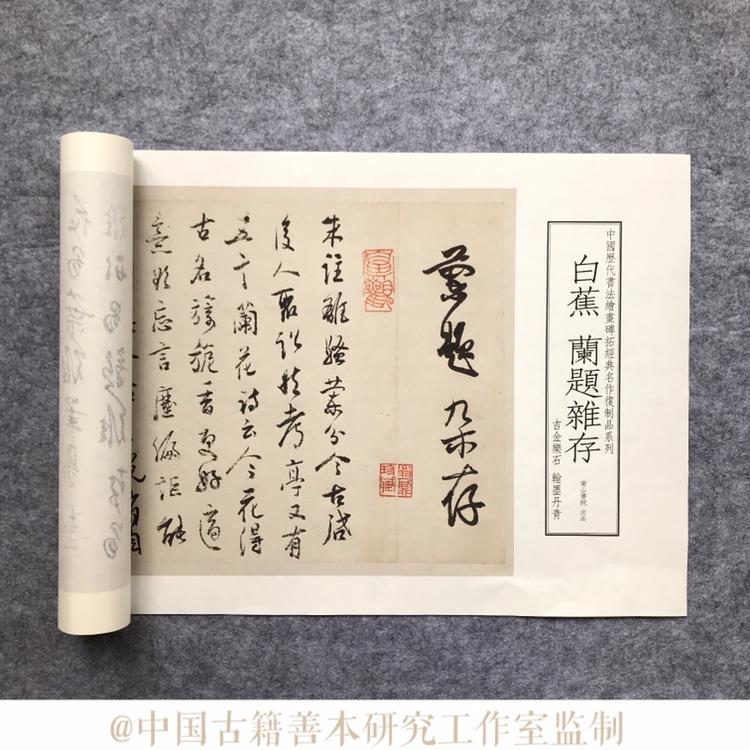 中國歷代書法繪畫碑拓經典名作復制品系列
白蕉 蘭題雜存
吉金樂石 翰墨丹青
南山書院 出品
蘭題杂存
朱註離騷蘭分今古啟
後人聚訟然考亭又有
五言蘭花詩云今花得
古名旖旎香更好適
意欲忘言塵編詎能
@中国古籍善本研究工作室监制